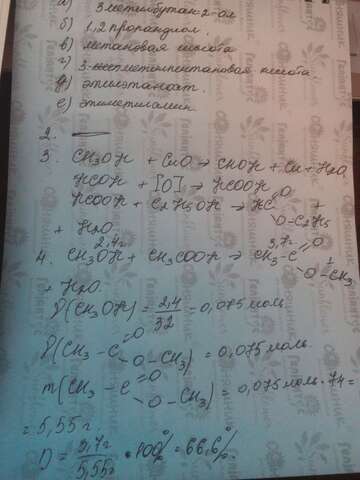 а) 3 метилбутан-2-ол
б) 1,2 пропандиол.
в) метановая кислота
г) 3-метилпентановая кислота.
д) этилэтаноат.
е) этилметиламин.
2. —
3. CH3OH + CuO → CHOH + Cu + H2O
HCOH + [O] → HCOOH
HCOOH + C2H5OH → HC=O
O-C2H5 +
+ H2O
2,4г 3,7г
4. CH3OH + CH3COOH → CH3-C=O
O-CH3 +
+ H2O
ν(CH3OH) = 2,4/32 = 0,075 моль
ν(CH3-C=O
O-CH3) = 0,075 моль
m(CH3-C=O
O-CH3) = 0,075 моль · 74 =
= 5,55 г.
η = 3,7г/5,55г · 100% = 66,6%.
Галактус